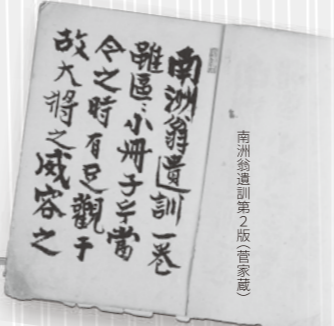 南洲翁遺訓一巻
雖區々小冊子乎當
今之時有足觀乎
故大将之威容之
南洲翁遺訓第2版(菅家蔵)